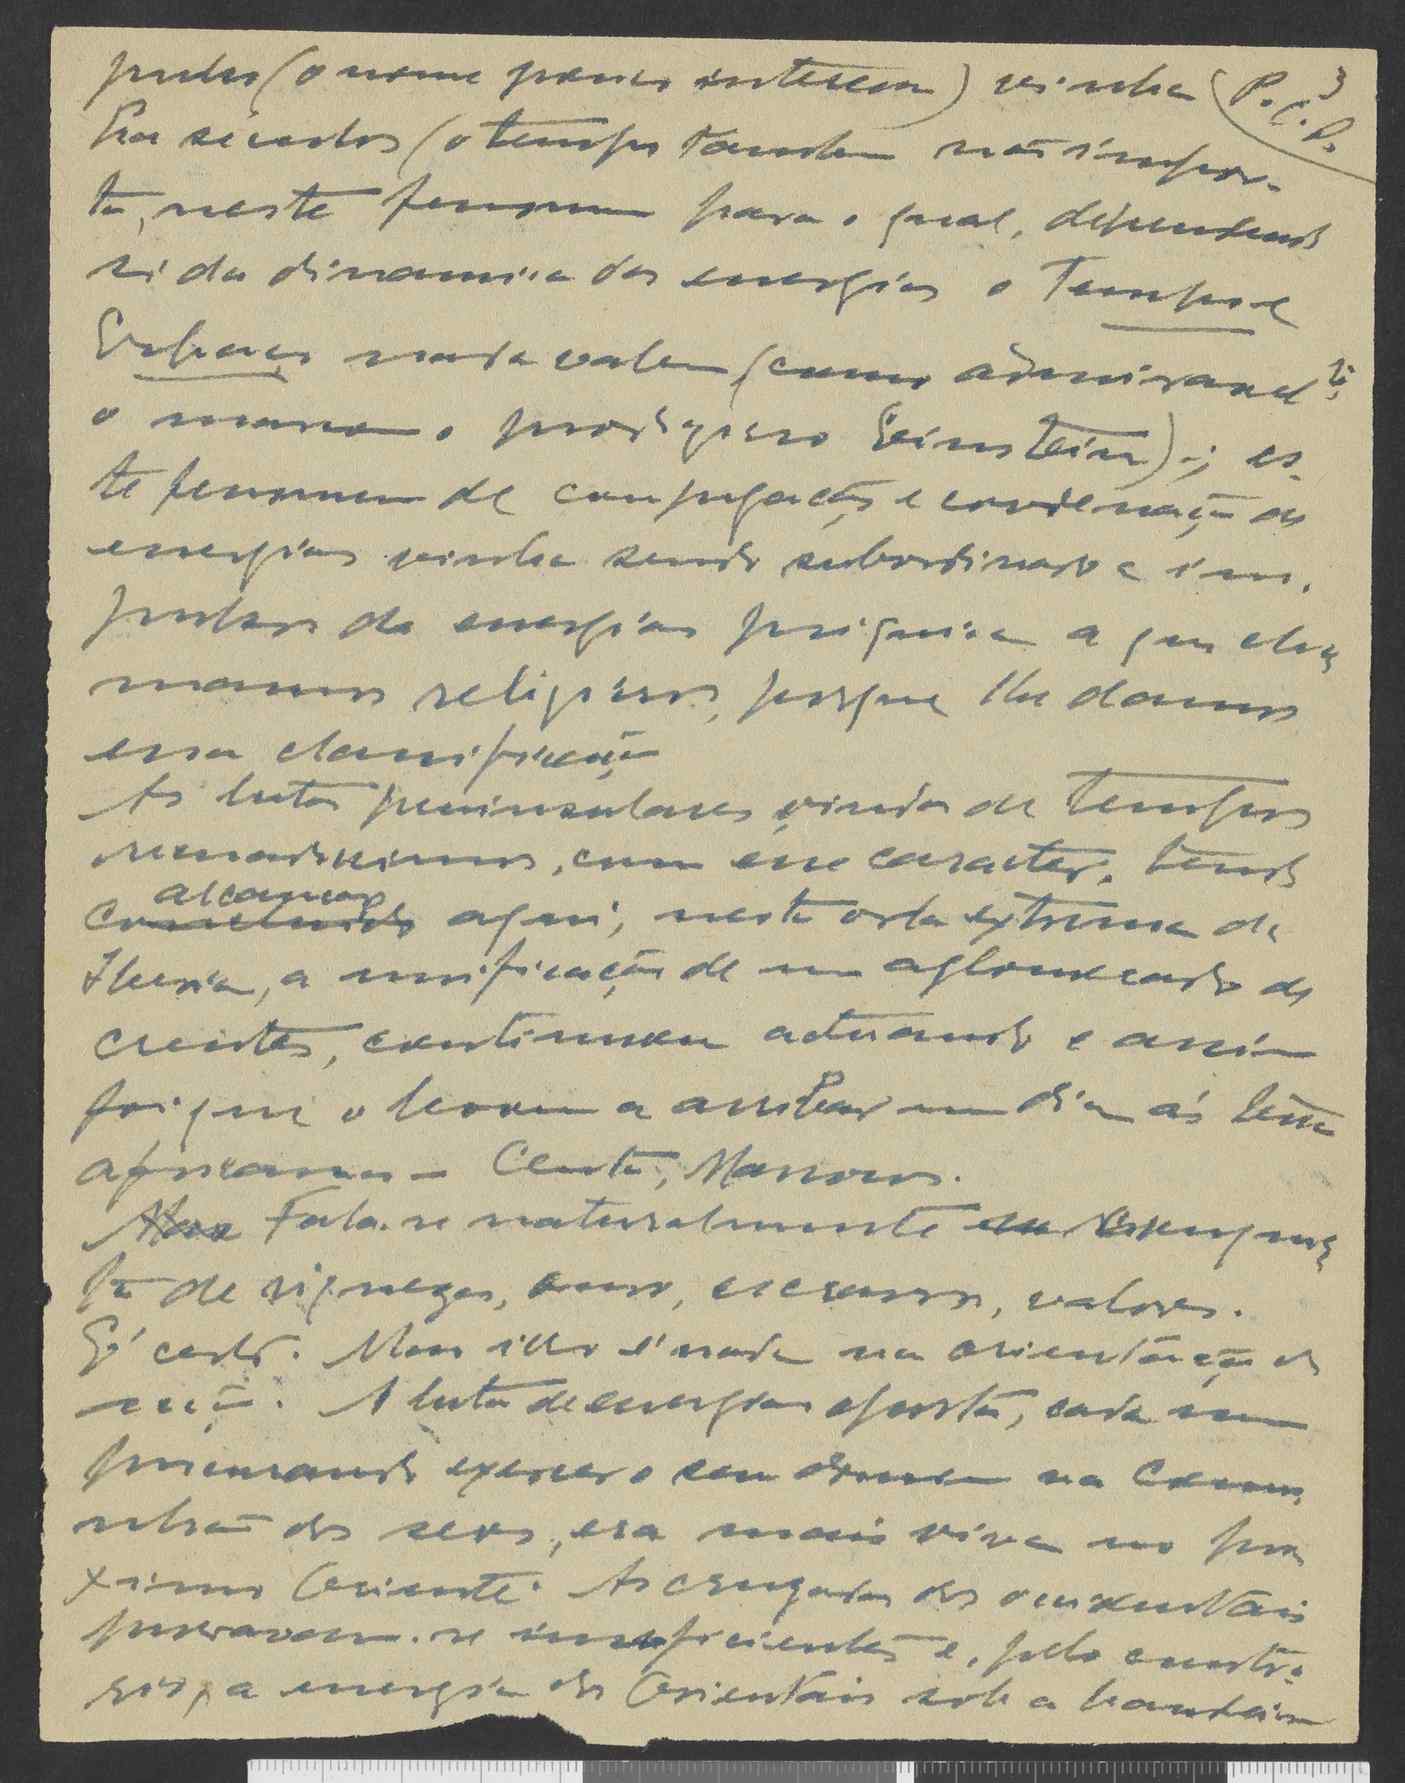 pulos (o nome pouco interessa) vinha (P.C.P. 3
ha séculos (o tempo tambem não impor-
ta, neste fenomeno para o qual, dependendo
si da dinamica das energias o Tempo e
Espaço nada valem, (como
o prodigioso Einstein); es-
te fenomeno de conjugação e coordenação de
energias vinha sendo subordinado a im-
pulsos da energia psiquica a que cha-
mamos religiosos, porque lhe damos
essa classificação
As lutas peninsulares, vindas de tempos
com esse caracter, tendo
alcançado
concluido aqui, nesta orla extrema da
Iberia, a unificação de um aglomerado de
crentes, continuou actuando e assim
foi que o levou a arribar um dia ás terras
africanas - Ceuta, Marrocos.
Fala-se naturalmente em conquis-
ta de riquezas, ouro, escravos, valores.
É certo. Mas isso é nada na orientação da
acção. A luta de energias opostas, cada uma
procurando exercer o seu dominio na
dos seres, era mais viva no pro-
ximo Oriente. As cruzadas dos ocidentais
provaram-se insuficientes e, pelo contra-
rio, a energia dos Orientais sob a bandeira